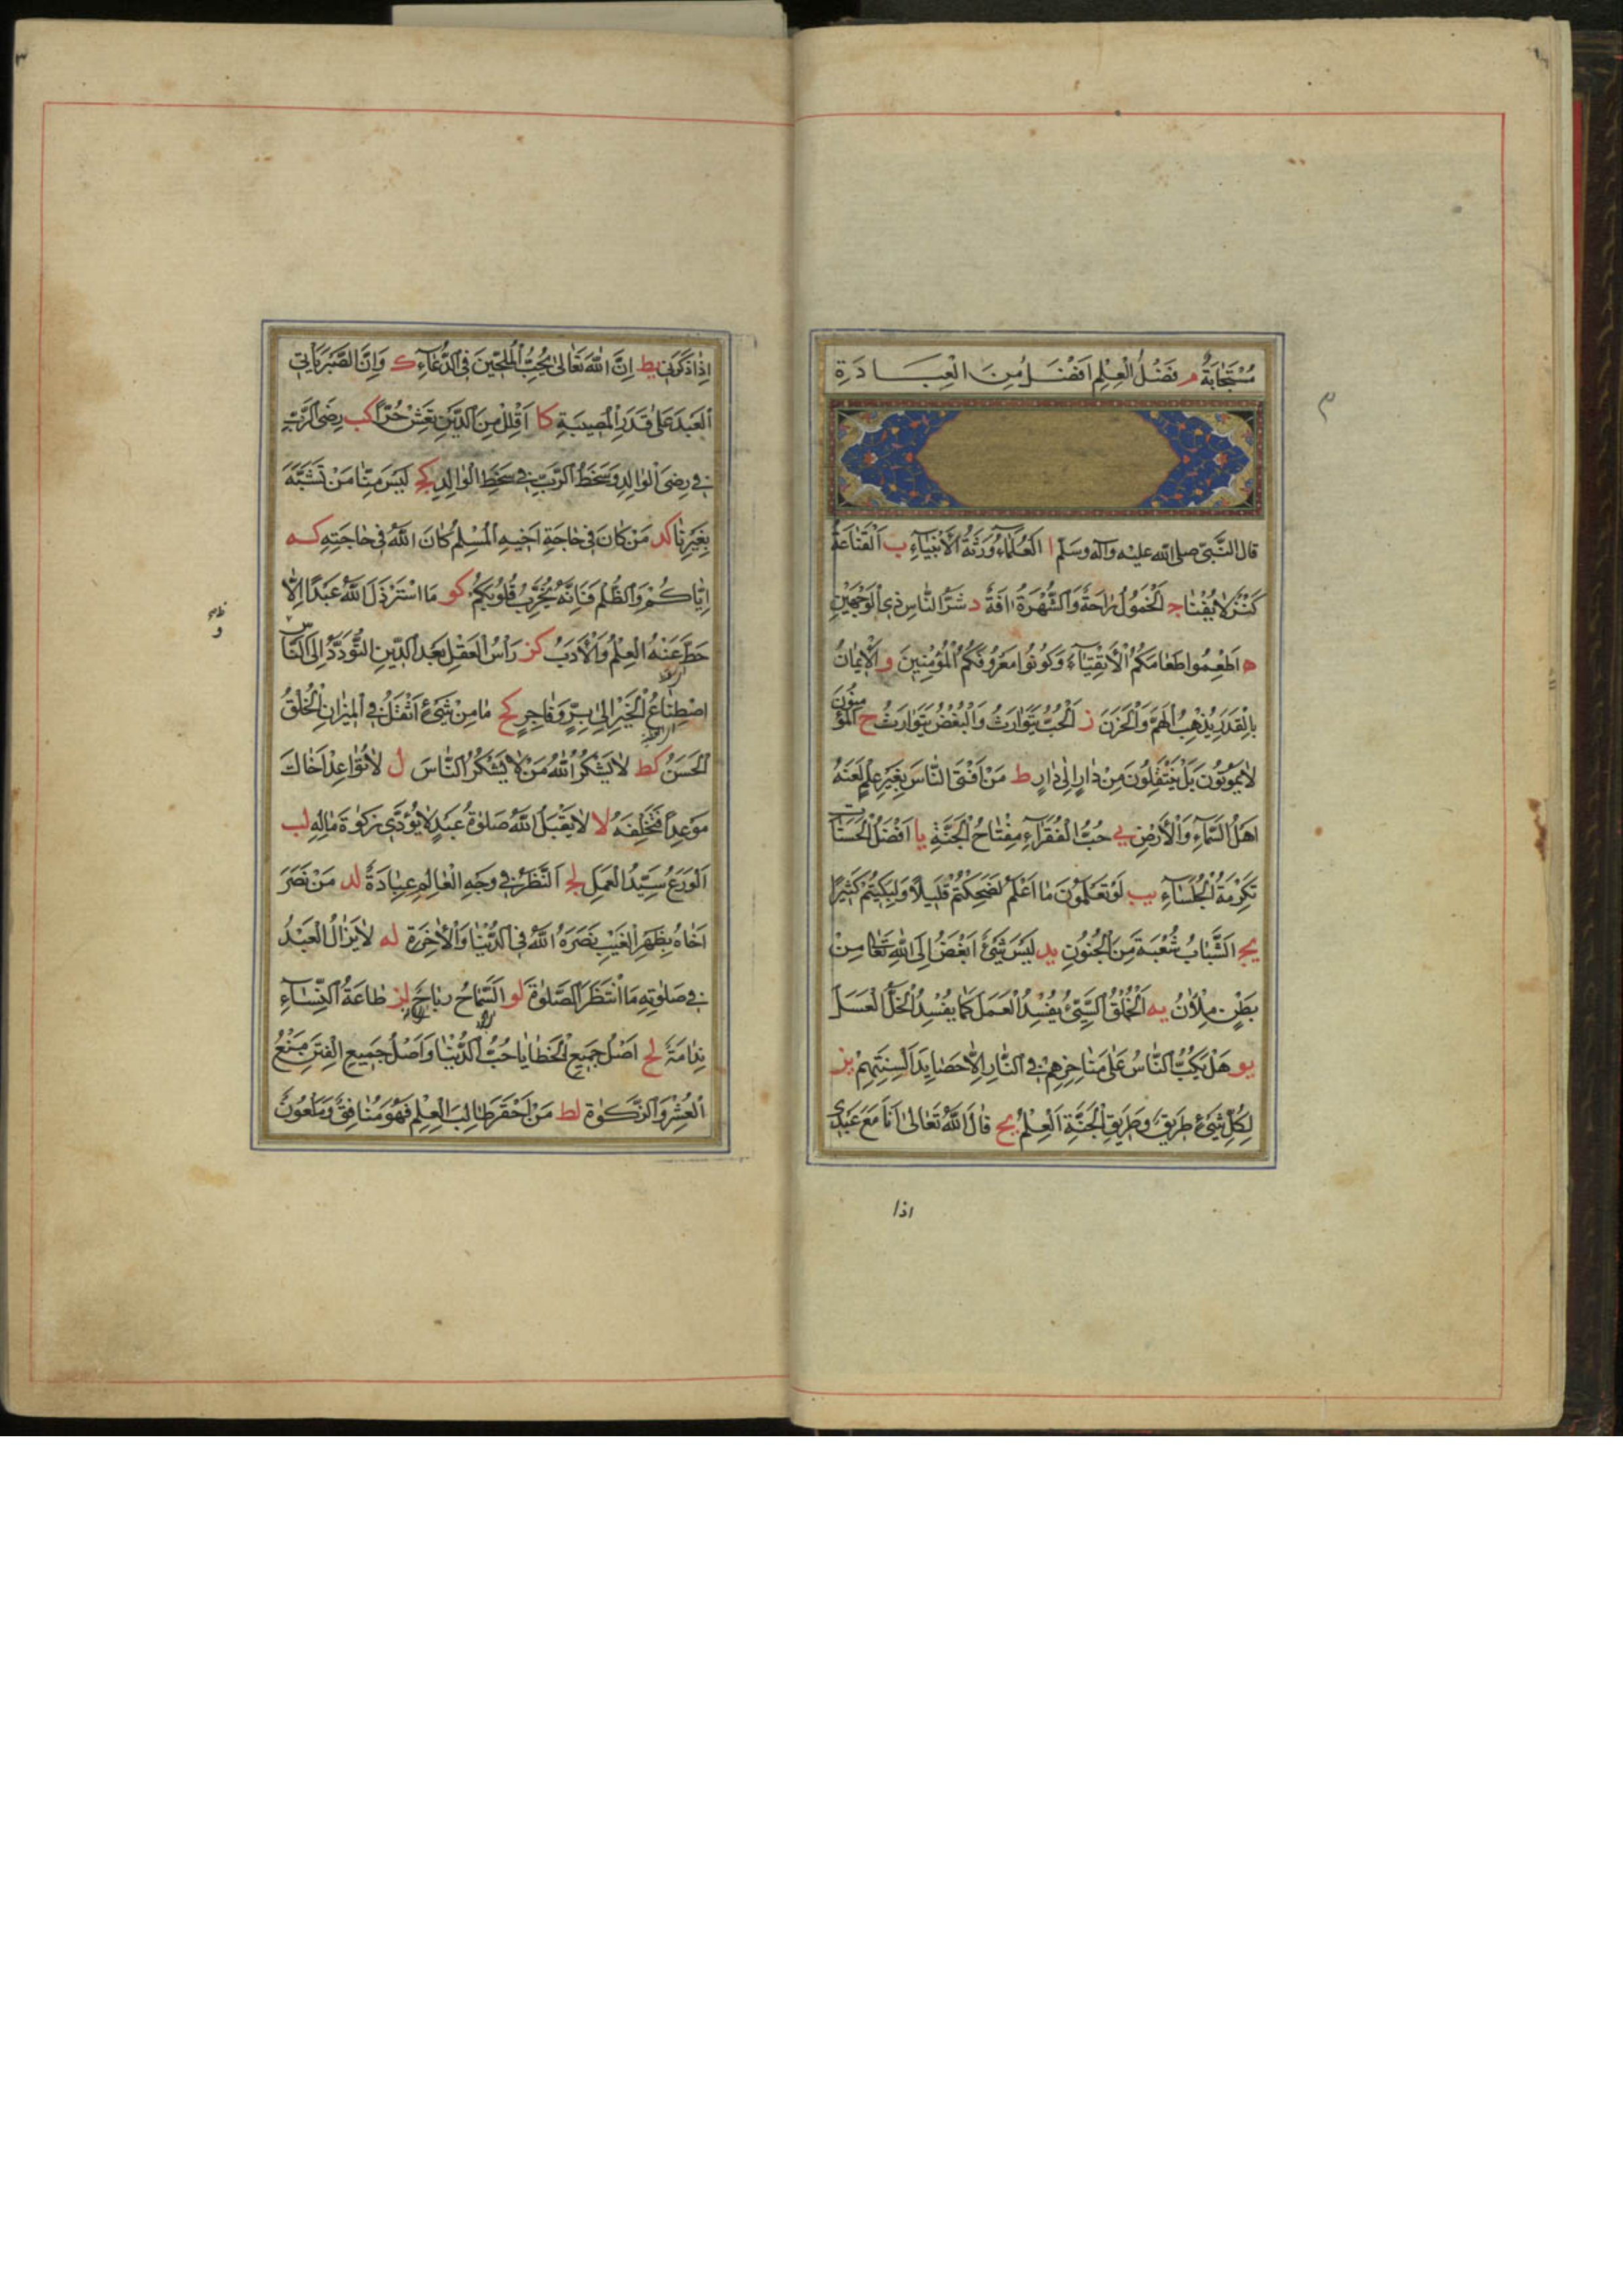 مُسْتَجَابَةٌ م فَضْلُ الْعِلْمِ اَفْضَلُ مِنَ الْعِبَادَةِ
قال النَّبِیّ صلی الله علیه وآله وسلم ا اَلْعُلَمَآءُ وَرَثَةُ الْاَنْبِیَآءِ ب اَلْقَنَاعَةُ
كَنْزٌ لَا یُفْنَا ج اَلْخُمُولُ رَاحَةٌ وَالشُّهْرَةُ اٰفَةٌ د شَرُّ النَّاسِ ذِی الْوَجْهَیْنِ
ه اَطْعِمُوا طَعَامَكُمُ الْاَتْقِیَآءَ وَكُونُوا مَعْرُوفَكُمُ الْمُؤْمِنِینَ و اَلْاِیمَانُ
بِالْقَدَرِ یُذْهِبُ الْهَمَّ وَالْحَزَنَ ز اَلْحُبُّ یَتَوَارَثُ وَالْبُغْضُ یَتَوَارَثُ ح اَلْمُؤْمِنُونَ
لَا یَمُوتُونَ بَلْ یَنْتَقِلُونَ مِنْ دَارٍ اِلٰی دَارٍ ط مَنْ اَفْتَی النَّاسَ بِغَیْرِ عِلْمٍ لَعَنَهُ
اَهْلُ السَّمَآءِ وَالْاَرْضِ ی حُبُّ الْفُقَرَآءِ مِفْتَاحُ الْجَنَّةِ یا اَفْضَلُ الْحَسَنَاتِ
تَكْرِمَةُ الْجُلَسَآءِ یب لَوْ تَعْلَمُونَ مَا اَعْلَمُ لَضَحِكْتُمْ قَلِیلًا وَلَبَكَیْتُمْ كَثِیرًا
یج اَلشَّبَابُ شُعْبَةٌ مِنَ الْجُنُونِ ید لَیْسَ شَیْءٌ اَبْغَضُ اِلَی اللهِ تَعَالٰی مِنْ
بَطْنٍ مِلْاٰنُ یه اَلْخُلْقُ السَّیِّئُ یُفْسِدُ الْعَمَلَ كَمَا یُفْسِدُ الْخَلُّ الْعَسَلَ
یو هَلْ یَكُبُّ النَّاسَ عَلٰی مَنَاخِرِهِمْ فِی النَّارِ اِلَّا حَصَایِدُ اَلْسِنَتِهِمْ یز
لِكُلِّ شَیْءٍ طَرِیقٌ وَطَرِیقُ الْجَنَّةِ اَلْعِلْمُ یح قَالَ اللهُ تَعَالٰی اَنَا مَعَ عَبْدِی
اذا
اِذَا ذَكَرَنِی یط اِنَّ اللهَ تَعَالٰی یُحِبُّ الْمُلِحِّینَ فِی الدُّعَآءِ ك وَاِنَّ الصَّبْرَ یَأْتِی
الْعَبْدَ عَلٰی قَدَرِ الْمُصِیبَةِ كا اَقْلِلْ مِنَ الدَّیْنِ تَعِشْ حُرًّا كب رِضَی الرَّبِّ
فِی رِضَی الْوَالِدِ وَسَخَطُ الرَّبِّ فِی سَخَطِ الْوَالِدِ كج لَیْسَ مِنَّا مَنْ تَشَبَّهَ
بِغَیْرِنَا كد مَنْ كَانَ فِی حَاجَةِ اَخِیهِ الْمُسْلِمِ كَانَ اللهُ فِی حَاجَتِهِ كه
اِیَّاكُمْ وَالظُّلْمَ فَاِنَّهُ یُخَرِّبُ قُلُوبَكُمْ كو مَا اسْتَرْذَلَ اللهُ عَبْدًا اِلَّا
حَطَّ عَنْهُ الْعِلْمُ وَالْاَدَبُ كز رَأْسُ الْعَقْلِ بَعْدَ الدِّینِ التَّوَدُّدُ اِلَی النَّاسِ
اصْطِنَاعُ الْخَیْرِ اِلٰی بِرٍّ وَفَاجِرٍ كح مَا مِنْ شَیْءٍ اَثْقَلُ فِی الْمِیزَانِ الْخُلْقُ
الْحَسَنُ كط لَا یَشْكُرُ اللهَ مَنْ لَا یَشْكُرُ النَّاسَ ل لَا تُوَاعِدْ اَخَاكَ
مَوْعِدًا فَتُخْلِفَهُ لا لَا یَقْبَلُ اللهُ صَلٰوةَ عَبْدٍ لَا یُؤَدِّی زَكٰوةَ مَالِهِ لب
اَلْوَرَعُ سَیِّدُ الْعَمَلِ لج اَلنَّظَرُ فِی وَجْهِ الْعَالِمِ عِبَادَةٌ لد مَنْ نَصَرَ
اَخَاهُ بِظَهْرِ الْغَیْبِ نَصَرَهُ اللهُ فِی الدُّنْیَا وَالْاٰخِرَةِ له لَا یَزَالُ الْعَبْدُ
فِی صَلٰوتِهِ مَا انْتَظَرَ الصَّلٰوةَ لو اَلسَّمَاحُ رَبَاحٌ لز طَاعَةُ النِّسَآءِ
نِدَامَةٌ لح اَصْلُ جَمِیعِ الْخَطَایَا حُبُّ الدُّنْیَا وَاَصْلُ جَمِیعِ الْفِتَنِ مَنْعُ
الْعُشْرِ وَالزَّكٰوةِ لط مَنْ اَحْقَرَ طَالِبَ الْعِلْمِ فَهُوَ مُنَافِقٌ وَمَلْعُونٌ